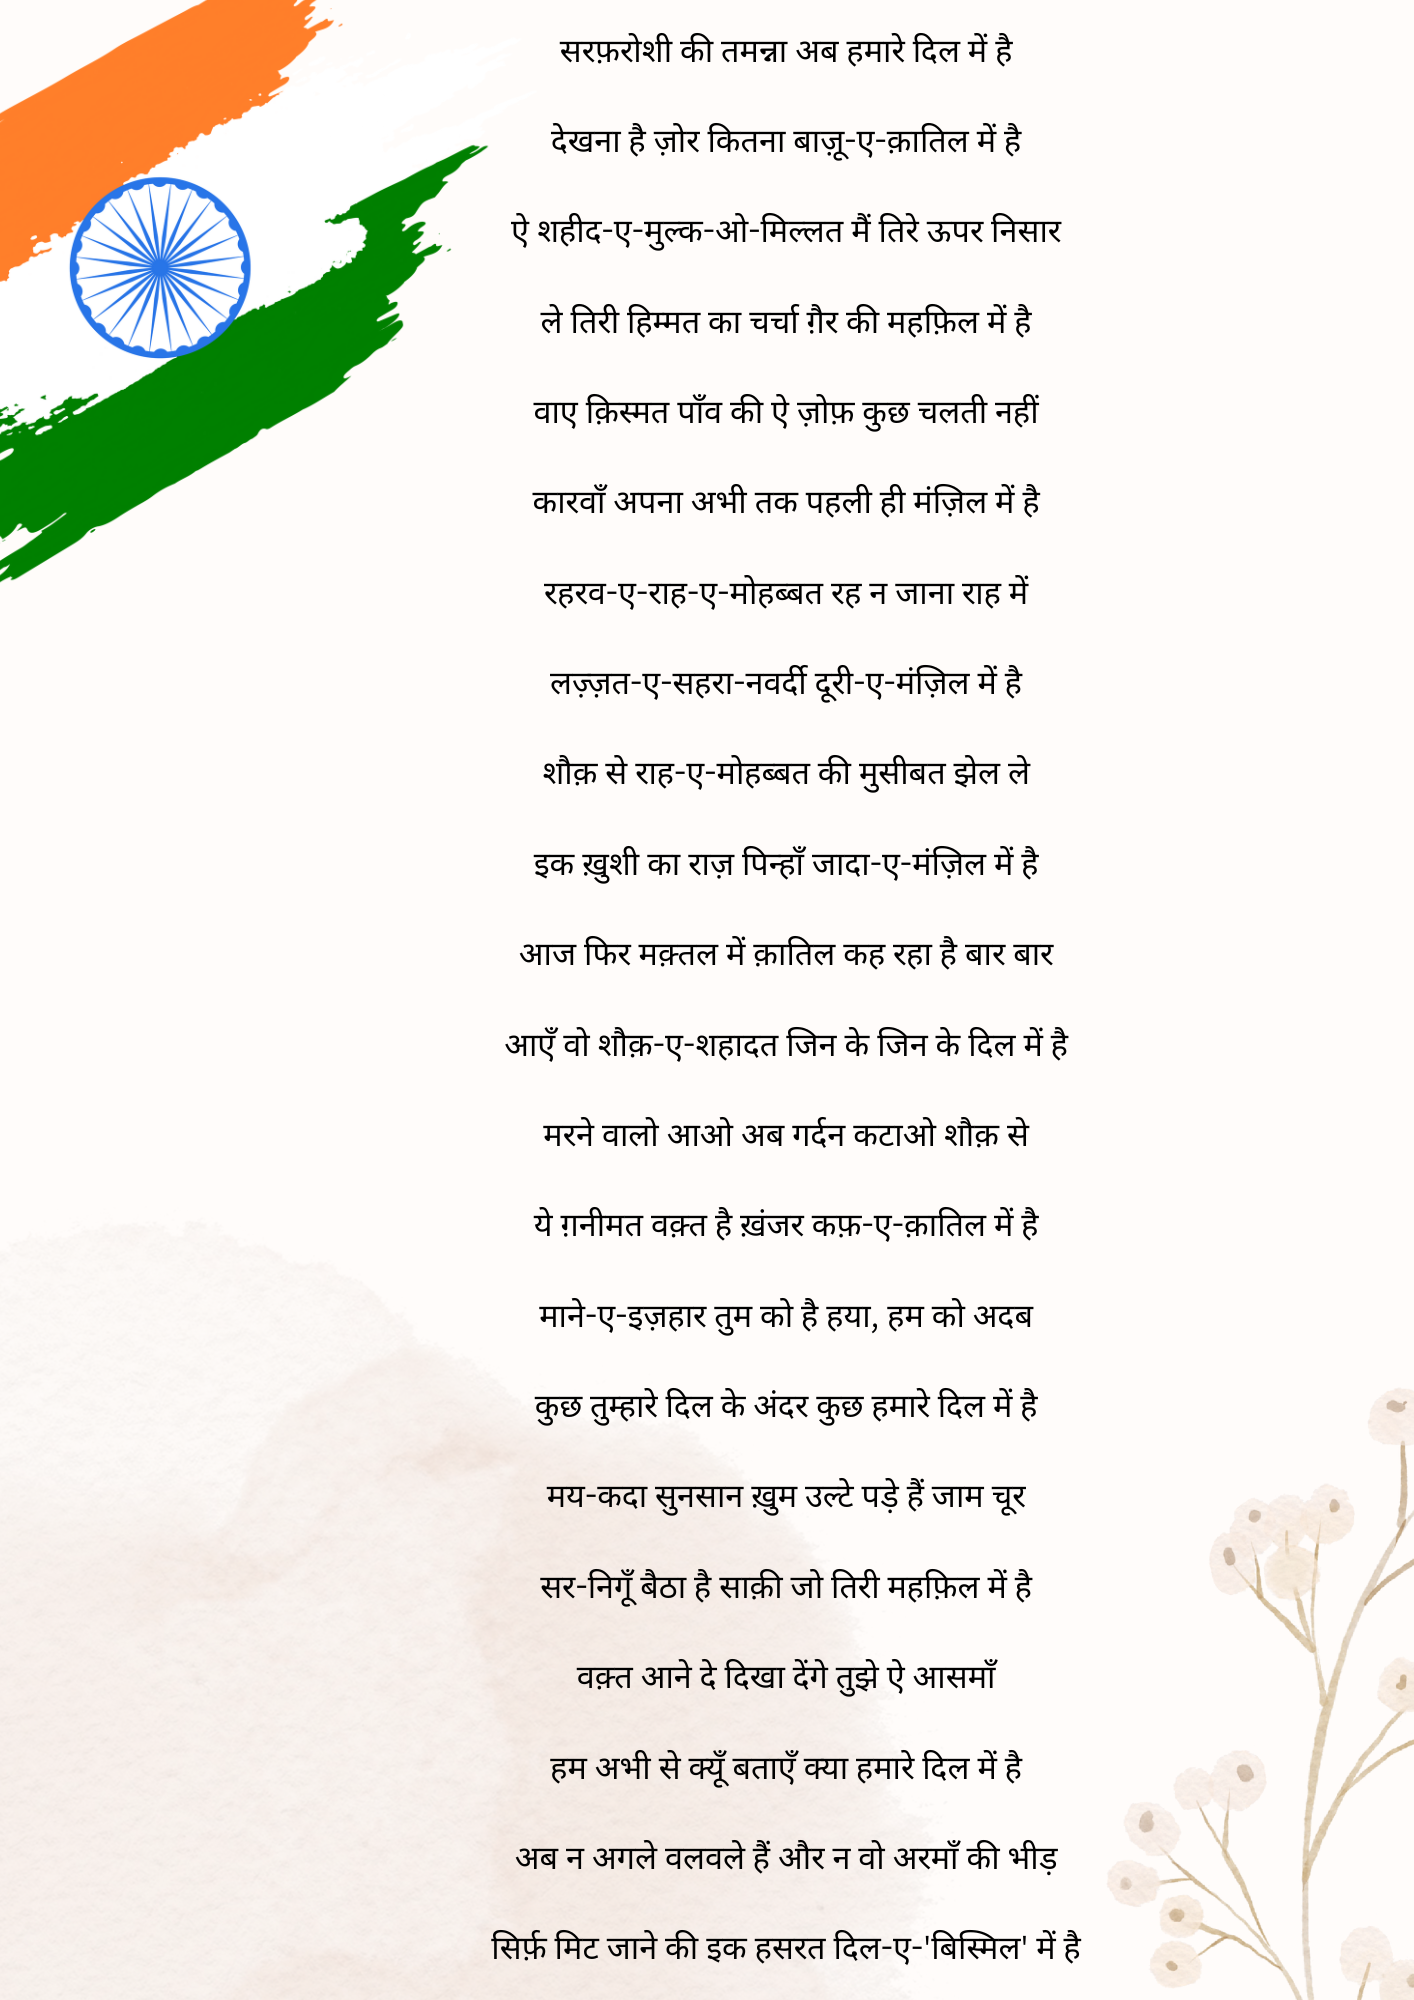 सरफ़रोशी की तमन्ना अब हमारे दिल में है
देखना है ज़ोर कितना बाज़ू-ए-क़ातिल में है
ऐ शहीद-ए-मुल्क-ओ-मिल्लत मैं तिरे ऊपर निसार
ले तिरी हिम्मत का चर्चा ग़ैर की महफ़िल में है
वाए क़िस्मत पाँव की ऐ ज़ोफ़ कुछ चलती नहीं
कारवाँ अपना अभी तक पहली ही मंज़िल में है
रहरव-ए-राह-ए-मोहब्बत रह न जाना राह में
लज़्ज़त-ए-सहरा-नवर्दी दूरी-ए-मंज़िल में है
शौक़ से राह-ए-मोहब्बत की मुसीबत झेल ले
इक ख़ुशी का राज़ पिन्हाँ जादा-ए-मंज़िल में है
आज फिर मक़्तल में क़ातिल कह रहा है बार बार
आएँ वो शौक़-ए-शहादत जिन के जिन के दिल में है
मरने वालो आओ अब गर्दन कटाओ शौक़ से
ये ग़नीमत वक़्त है ख़ंजर कफ़-ए-क़ातिल में है
माने-ए-इज़हार तुम को है हया, हम को अदब
कुछ तुम्हारे दिल के अंदर कुछ हमारे दिल में है
मय-कदा सुनसान ख़ुम उल्टे पड़े हैं जाम चूर
सर-निगूँ बैठा है साक़ी जो तिरी महफ़िल में है
वक़्त आने दे दिखा देंगे तुझे ऐ आसमाँ
हम अभी से क्यूँ बताएँ क्या हमारे दिल में है
अब न अगले वलवले हैं और न वो अरमाँ की भीड़
सिर्फ़ मिट जाने की इक हसरत दिल-ए-'बिस्मिल' में है